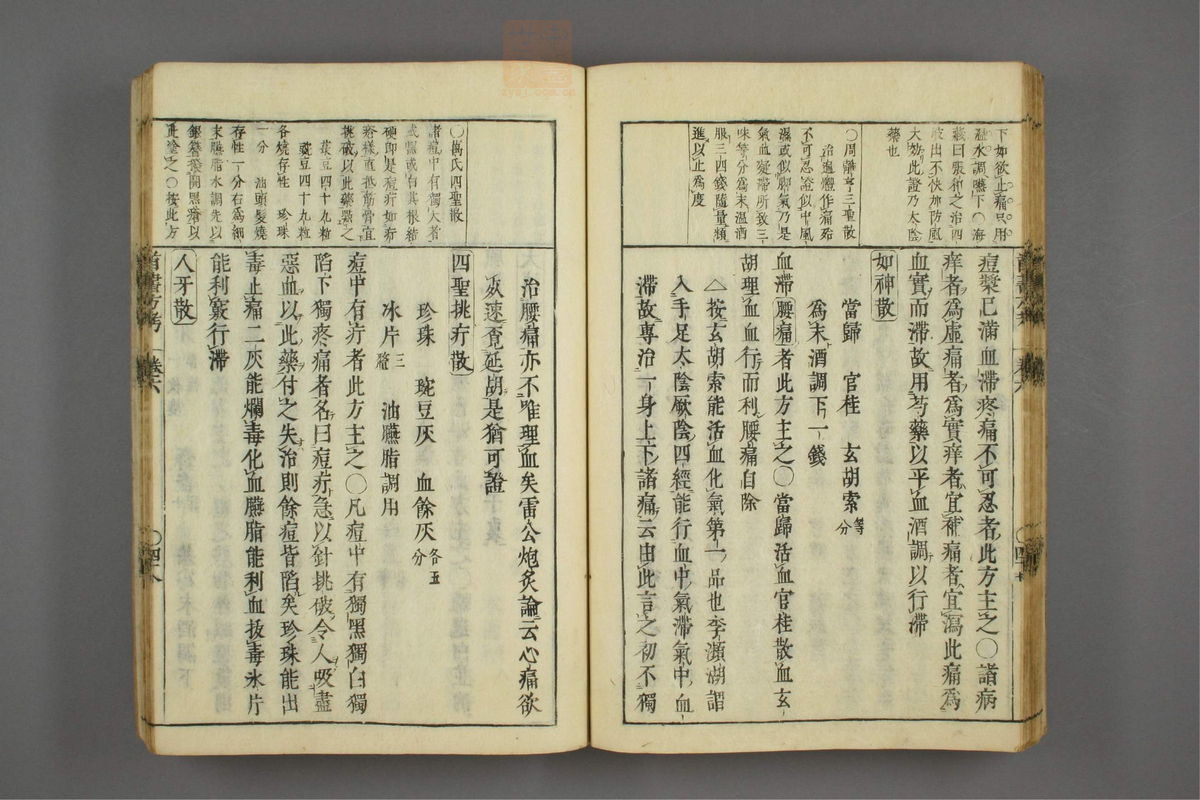 下如欲止痛只用
溫水調嚥下〇海
藏曰張和之治四
肢出不快加防風
大効此證乃太陰
藥也
〇周離亨三聖散
治遍體作痛殆
不可忍證似中風
濕或似腳氣乃是
氣血凝滯所致三
味等分為末溫酒
服三四錢隨量頻
進以止為度
痘漿已滿血滯疼痛不可忍者此方主之〇諸病
痒者為虛痛者為實痒者宜補痛者宜瀉此痛為
血實而滯故用芍藥以平血酒調以行滯
如神散
當歸 官桂 玄胡索等分
為末酒調下一錢
血滯腰痛者此方主之〇當歸活血官桂散血玄
胡理血血行而利腰痛自除
△按玄胡索能活血化氣第一品也李瀕湖謂
入手足太陰厥陰四經能行血中氣滯氣中血
滯故專治一身上下諸痛云由此言之初不獨
卷六
〇四十七
〇萬氏四聖散
諸痘中有獨大者
或黑或白其根結
硬即是痘疔如疔
疼樣直抵筋骨宜
挑破以此藥點之
菉豆四十九粒
豌豆四十九粒
各燒存性 珍珠
一分 油頭髮燒
存性一分右為細
末臙脂水調先以
銀簪撥開黑瘡以
此塗之〇按此方
治腰痛亦不唯理血矣雷公炮炙論云心痛欲
死速覓延胡是猶可證
四聖挑疔散
珍珠 豌豆灰 血餘灰各五分
冰片三釐 油臙脂調用
痘中有疔者此方主之〇凡痘中有獨黑獨白獨
陷下獨疼痛者名曰痘疔急以針挑破令人吸盡
惡血以此藥付之失治則餘痘皆陷矣珍珠能出
毒止痛二灰能爛毒化血臙脂能利血拔毒氷片
能利竅行滯
人牙散
醫書方考 卷六
〇四十八